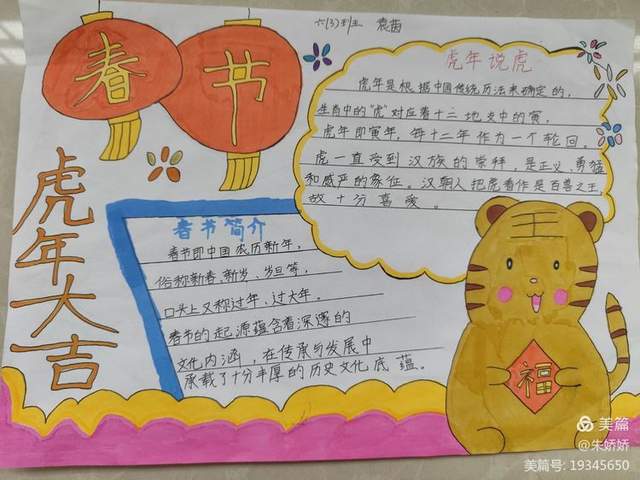 六(3)班 袁茵
春节
虎年大吉
虎年说虎
虎年是根据中国传统历法来确定的,
生肖中的"虎"对应着十二地支中的寅,
虎年即寅年,每十二年作为一个轮回。
虎一直受到汉族的崇拜,是正义、勇猛
和威严的象征。汉朝人把虎看作是百兽之王
故十分喜爱。
春节简介
春节即中国农历新年,
俗称新春、新岁、岁旦等,
口头上又称过年、过大年。
春节的起源蕴含着深邃的
文化内涵,在传承与发展中
承载了十分丰厚的历史文化底蕴。
王
福
美篇
@朱娇娇
美篇号: 19345650